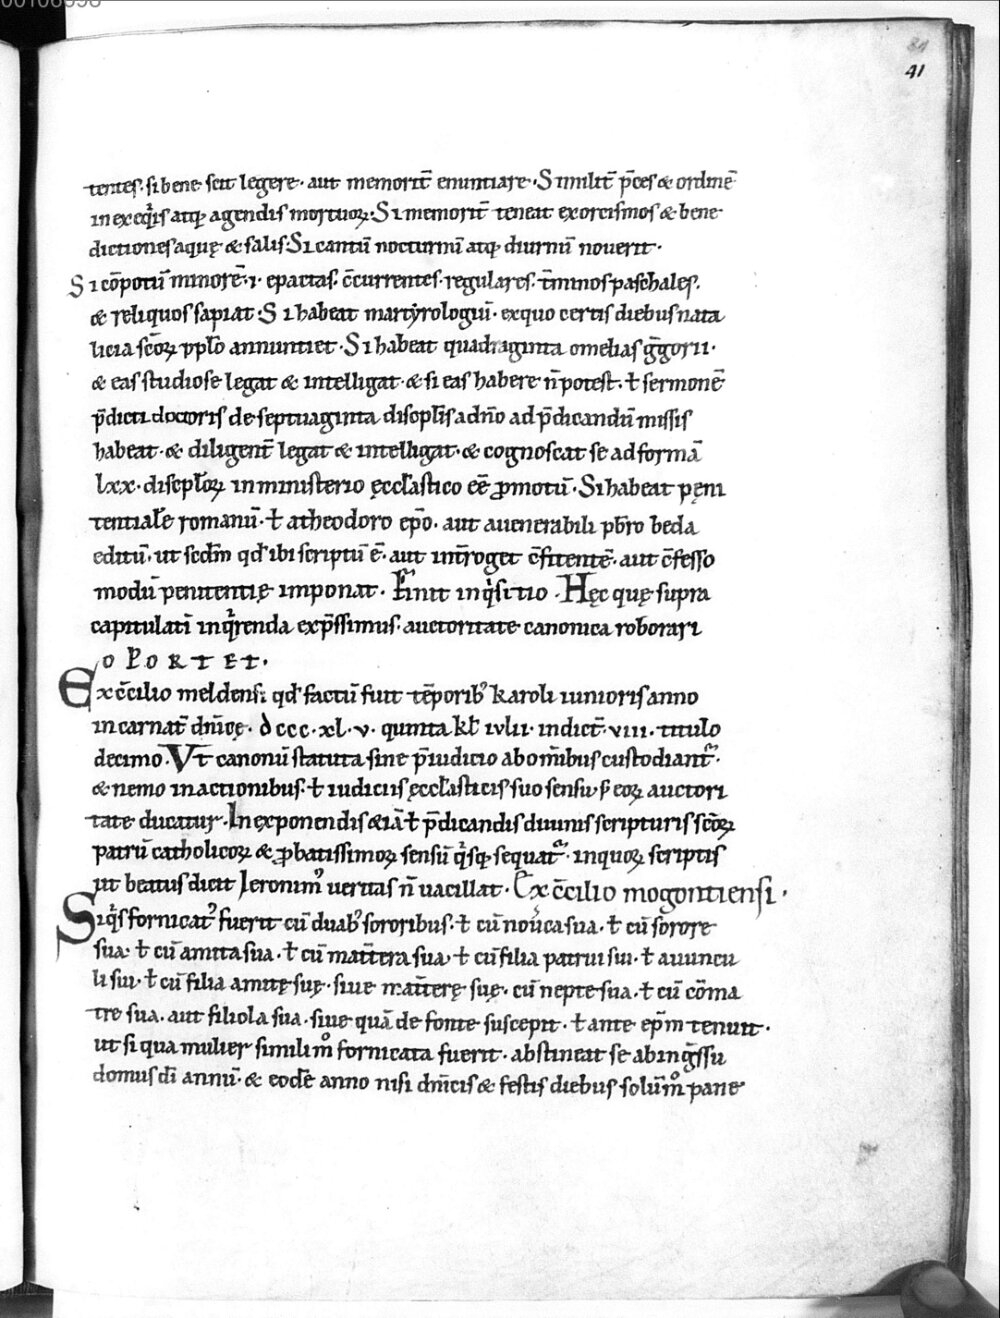 00106098
84
41
tentes. si bene scit legere. aut memorit̄ enuntiare. Similit̄ p̄ces & ordinē
in exeq̇is atq; agendis mortuoꝝ. Si memorit̄ teneat exorcismos & bene
dictiones aquę & salis. Si cantū nocturnū atq; diurnū noverit.
Si cōpotū minorē. i. epactas. c̄currentes. regulares. t̄minos paschales.
& reliquos sapiat. Si habeat martyrologiū. ex quo certis diebus nata
licia sc̄oꝝ pplō annuntiet. Si habeat quadraginta omelias ḡgorii.
& eas studiose legat & intelligat. & si eas habere n̄ potest. ł sermonē
p̄dicti doctoris de septuaginta discipłis a dn̄o ad p̄dicandū missis
habeat. & diligent̄ legat & intelligat. & cognoscat se ad formā
lxx. discipłoꝝ in ministerio ęccłastico eē ꝓmotū. Si habeat pęni
tentiałe romanū. ł a theodoro ep̄o. aut a venerabili pbr̄o beda
editū. ut scdm̄ qd' ibi scriptū ē. aut int̄roget c̄fitentē. aut c̄fesso
modū penitentię imponat. Finit inq̇sitio. Hęc quę supra
capitulati inq̇renda exp̄ssimus. auctoritate canonica roborari
oportet.
Ex c̄cilio meldensi qd' factū fuit tēporib' karoli iunioris anno
incarnat̄ dn̄icę. dccc. xl. v. quinta kł iulii. indict̄. viii. titulo
decimo. Vt canonū statuta sine p̄iudicio ab om̄ibus custodiant᷑.
& nemo in actionibus. ł iudiciis ęccłasticis suo sensu. s; eoꝝ auctori
tate ducatur. In exponendis &iā ł p̄dicandis divinis scripturis sc̄oꝝ
patrū catholicoꝝ & ꝓbatissimoꝝ sensū q̇sq; sequat᷑. in quoꝝ scriptis
ut beatus dicit Ieronim' veritas n̄ vacillat. Ex c̄cilio mogontiensi.
Siq̇s fornicat' fuerit cū duab' sororibus. ł cū noverca sua. ł cū sorore
sua. ł cū amita sua. ł cū mat̄tera sua. ł cū filia patrui sui. ł avuncu
li sui. ł cū filia amitę suę. sive mat̄terę suę. cū nepte sua. ł cū cōma
tre sua. aut filiola sua. sive quā de fonte suscepit. ł ante ep̄m tenuit.
ut si qua mulier simili mͦ fornicata fuerit. abstineat se ab ing̊ssu
domus dī annū. & eodē anno nisi dn̄icis & festis diebus solūmͦ pane